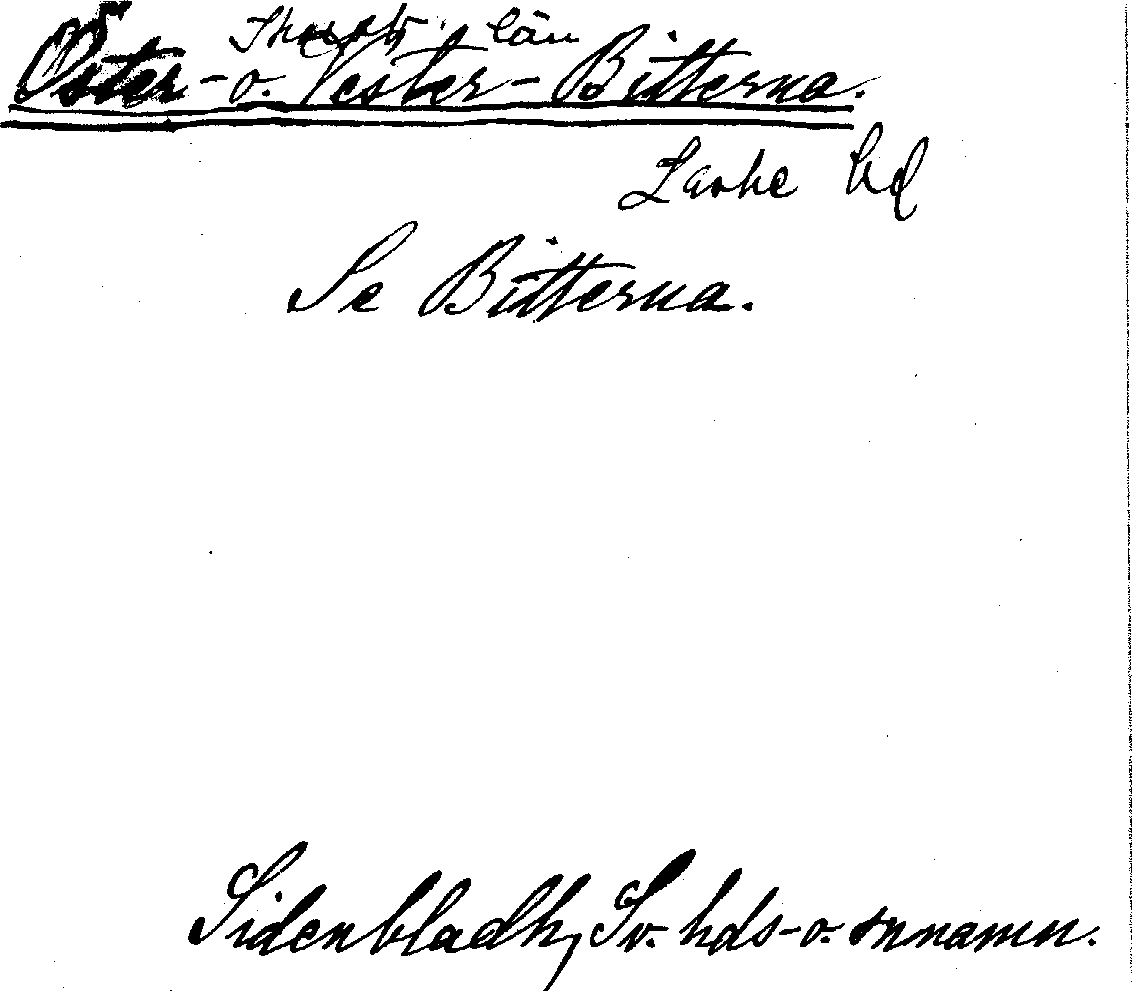 Skarab. län
Öster- o. Vester-Bitterna.
Laske hd
Se Bitterna.
Sidenbladh, Sv. hds- o. snnamn.